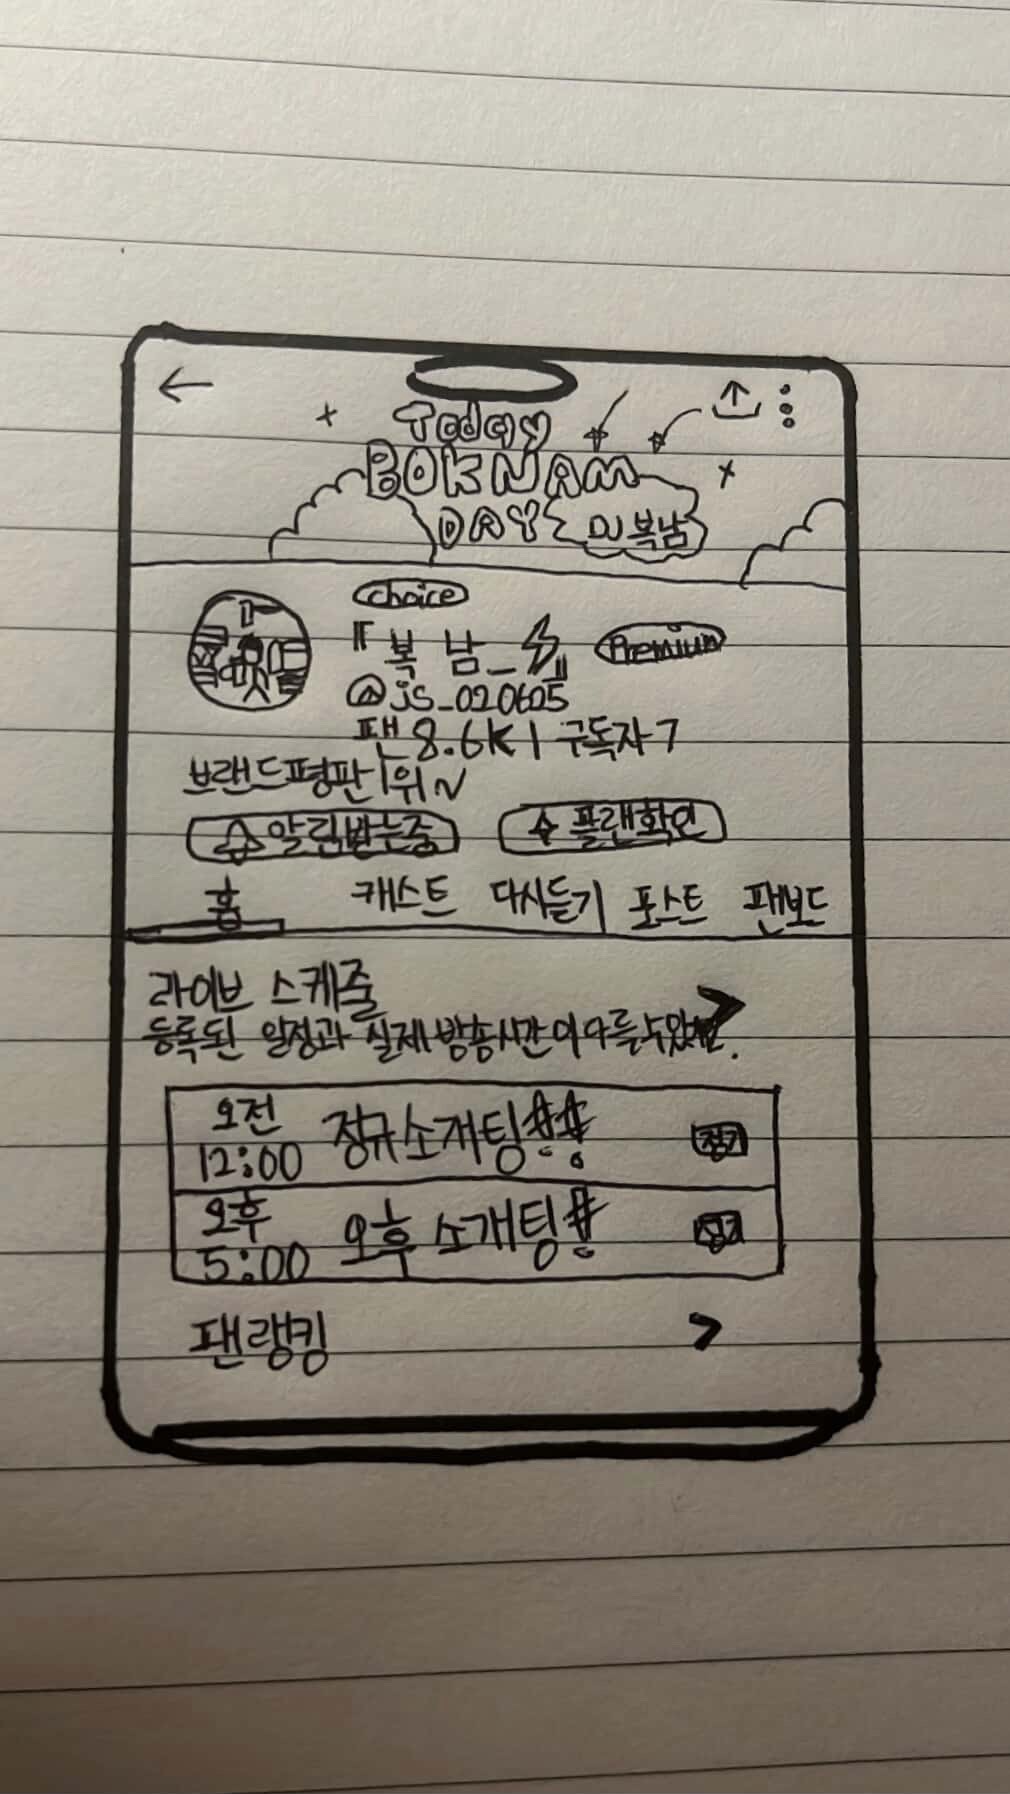 Today
BOKNAM
DAY DJ 복남
choice
『복 남_⚡』 Premium
@js_020625
팬 8.6K | 구독자 7
브랜드평판 1위~
알림받는중 플랜확인
홈 캐스트 다시듣기 포스트 팬보드
라이브 스케줄 >
등록된 일정과 실제 방송시간이 다를 수 있어요.
오전 정규소개팅!! 정기
12:00
오후 오후 소개팅! 정기
5:00
팬랭킹 >